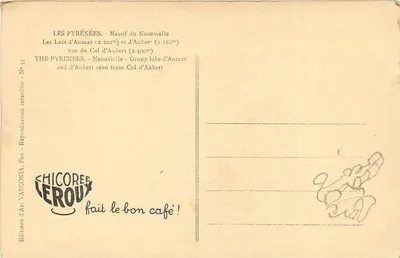 LES PYRÉNÉES. - Massif du Neouvielle
Les Lacs d'Aumar (2.202m) et d'Aubert (2.160m)
vus du Col d'Aubert (2.500m)
THE PYRENEES. - Neouvielle - Group labe d'Aumar
and d'Aubert seen from Col d'Aubert
Editions d'Art VASCONIA, Pau - Reproduction interdite - N° 35
CHICORÉE
LEROUX
fait le bon café!